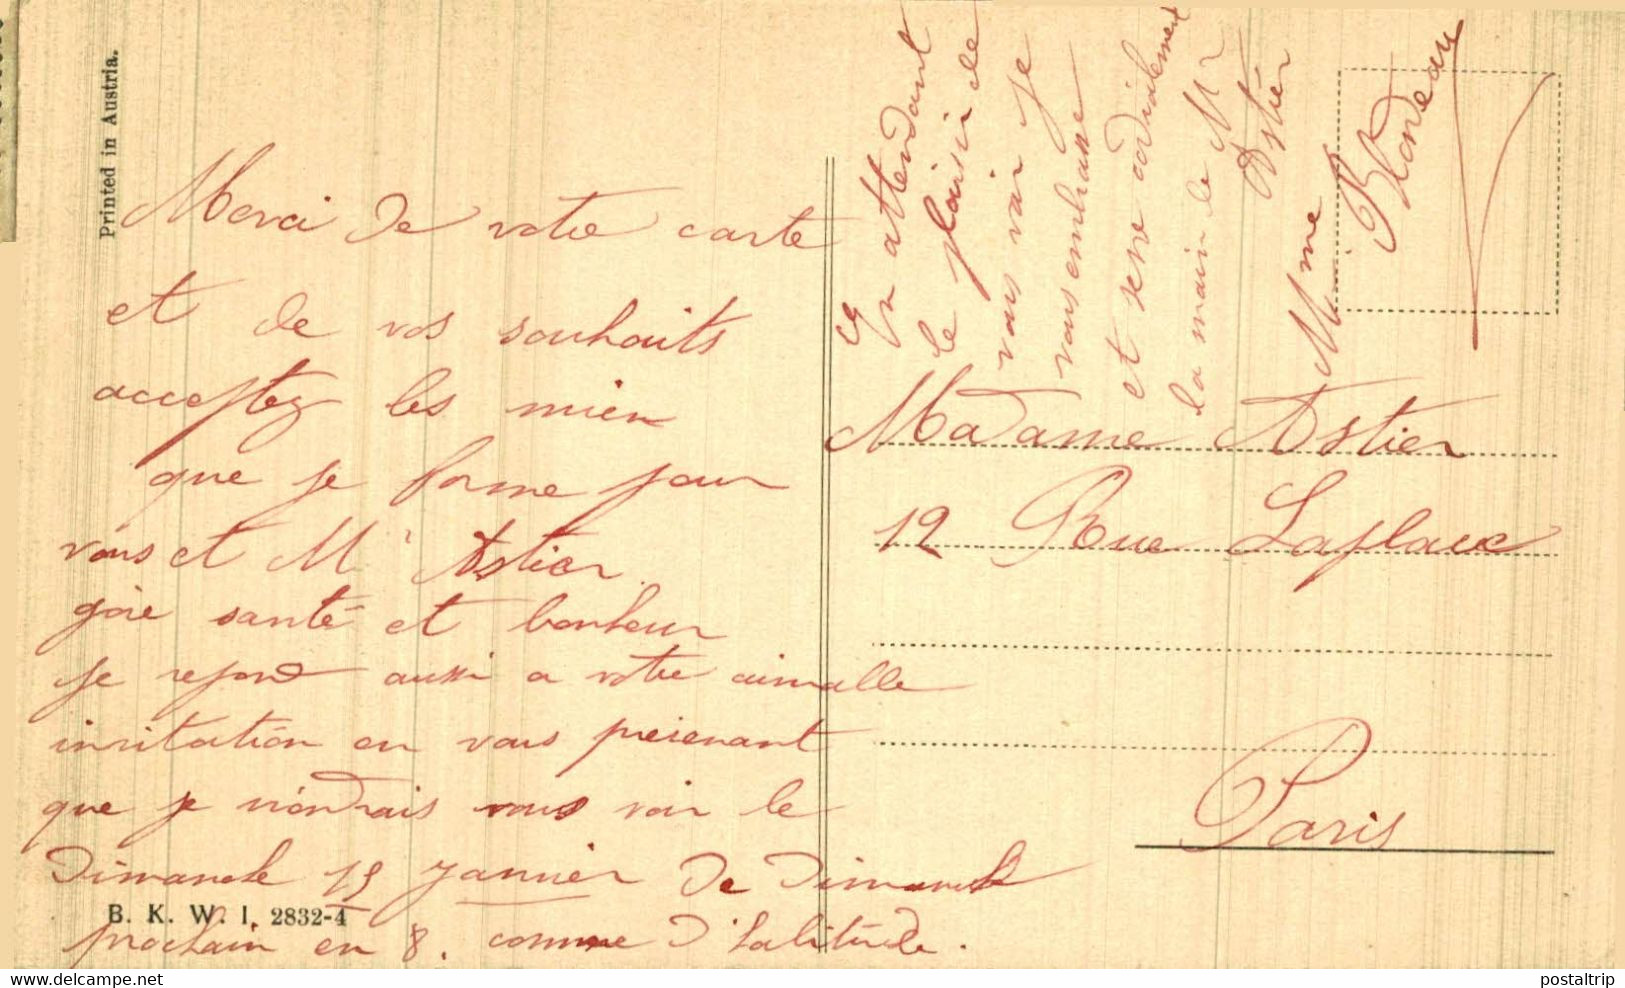 Printed in Austria.
Merci de votre carte
et de vos souhaits
acceptez les mien
que je forme pour
vous et Mr Astier
goie santé et bonheur
je repond aussi a votre aimalle
invitation en vous prevenant
que je viendrais vous voir le
Dimanche 15 Janvier De Dimanche
prochain en 8. comme D'habitude.
B. K. W. I. 2832-4
En attendant
le plaisir de
vous voir je
vous embrasse
et serre cordialement
la main de Mr
Astier
Mme Blondeau
Madame Astier
12 Rue Laplace
Paris
postaltrip